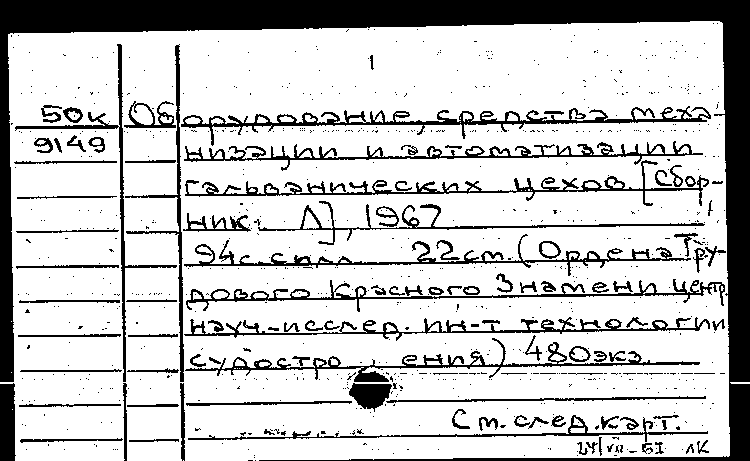 1
50к Оборудование, средства меха-
9149 низации и автоматизации
гальванических цехов. [Сбор-
ник. Л], 1967
94с. с илл. 22см. (Ордена Тру-
дового Красного Знамени центр.
науч.-исслед. ин-т технологии
судостро ения) 480экз.
См. след. карт.